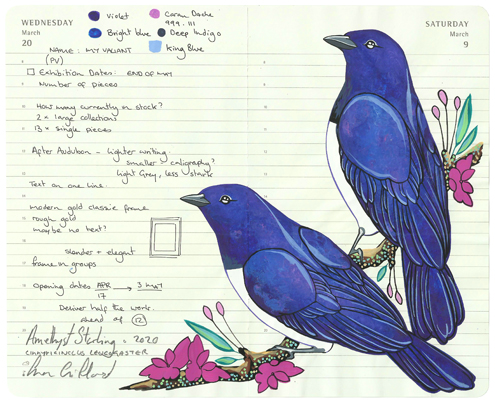 WEDNESDAY
March
20
Violet
Caran Dache
999. 111
Bright blue
Deep Indigo
King Blue
NAME: MY VALIANT
(PV)
Exhibition Dates: END OF MAY
Number of pieces
How many currently in stock?
2 x large collections
13 x single pieces
After Audubon - lighter writing.
smaller caligraphy?
light Grey, less stark
Text on one line.
modern gold classic frame
rough gold
maybe no text?
slender + elegant
frame in groups
Opening dates APR → 3 MAY
17
Deliver half the work.
ahead of 12
Amethyst Starling. 2020
CINNYRICINCLUS LEUCOGASTER
SATURDAY
March
9